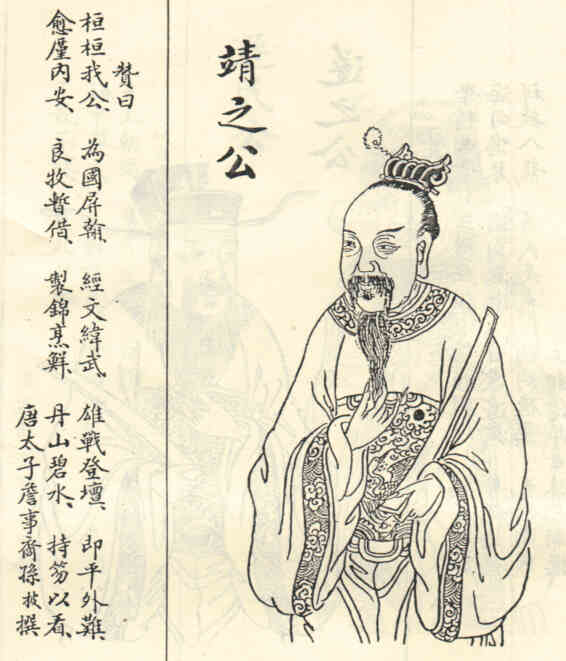 靖之公
贊曰
桓桓我公、為國屏翰、經文緯武。雄戰登壇、即平外難、
愈厪內安、良牧暫借、製錦烹鮮丹山碧水、持笏以看、
唐太子詹事裔孫技撰